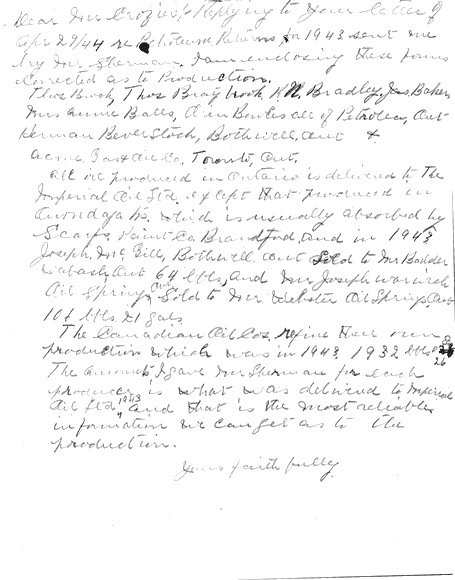 Dear Mr Crozier:- Replying to your letter of
Apr 29/44 re Petroleum Returns for 1943 sent me
by Mr Sherman. I am enclosing these forms
corrected as to Production.
Thos Brook, Thos Braybrook, Bradley, Jas Baker
Mrs Annie Balls, all of Petrolea, Ont
Herman Beverstock, Bothwell, Ont &
Acme Gas & Oil Co. Toronto, Ont.
All oil produced in Ontario is delivered to The
Imperial Oil Ltd. except that produced in
Onondaga Tp. which is usually absorbed by
Scarfe Paint Co Brandford, and in 1943
Joseph McGill, Bothwell, Ont Sold to Mr Badder
Wabash, Ont 64 bbls, and Mr Joseph Warwick
Oil Springs, Ont Sold to Mr Webster Oil Springs, Ont
101 bbls 21 gals
The Canadian Oil Cos. refine their own
production which was in 1943 1932 bbls
26
The amounts I gave Mr Sherman for each
producer is what was delivered to Imperial
Oil Ltd, 1943 and that is the most reliable
information we can get as to the
production.
Yours faithfully